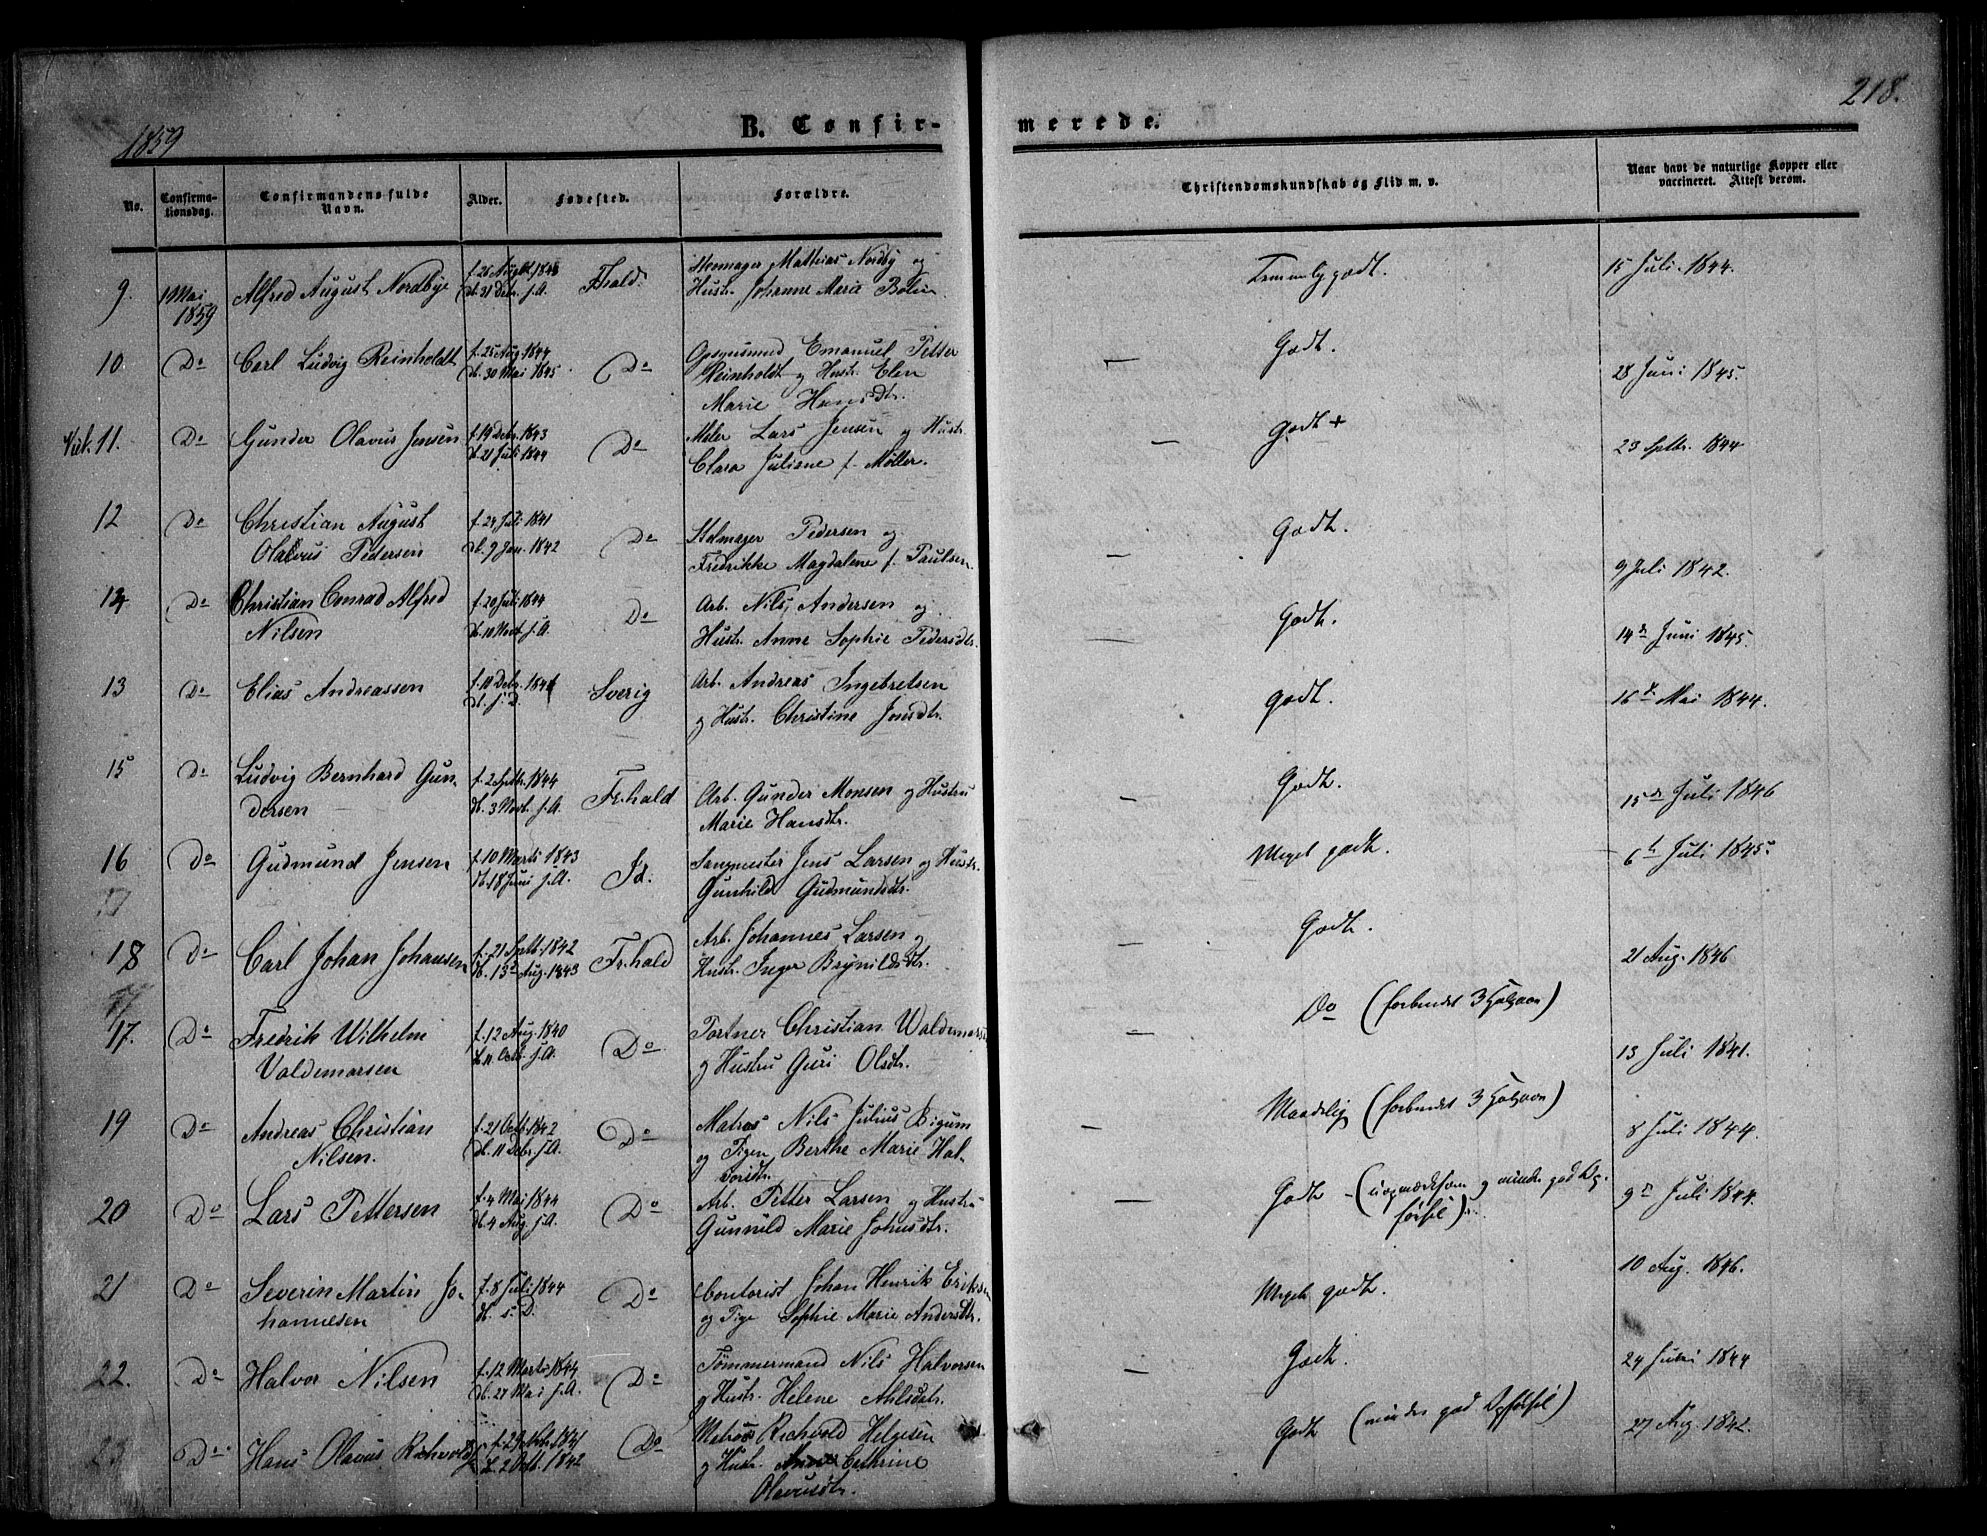 218.
1859
B. Confir-
merede.
No.
Confirma-
tionsdag.
Confirmandens fulde
Navn.
Alder.
Fødested.
Forældre.
Christendomskundskab og Flid m. v.
Naar havt de naturlige Kopper eller
vaccineret. Attest derom.
9 1 Mai Alfred August Nordbye Mathias Nordby og
1859 Hustr. Johanne Marie
15 Juli 1844.
10 Do Carl Ludvig Reinholdt f. 25 Aug. 1844 Do Emanuel Petter
db. 30 Mai 1845 Reinholdt og Hustr. Elen
Marie Hansdtr.
Godt. 28 Juni 1845.
11. Do Gunder Olavus Jensen f. 19 Debr. 1843 Do Maler Lars Jensen og Hustr.
db. 21 Juli 1844 Clara Juliane f. Møller.
Godt + 23 Septbr. 1844
12 Do Christian August f. 24 Juli 1841 Do Pedersen og
Olavus Pedersen db. 9 Jan. 1842 Fredrikke Magdalene f. Paulsen
Godt. 9 Juli 1842.
14 Do Christian Conrad Alfred f. 20 Juli 1844 Do Arb. Nils Andersen og
Nilsen db. 10 Novb. j. A. Hustr. Anne Sophie Pedersdtr.
Godt. 14de Juni 1845.
13 Do Elias Andreassen Sverig Arb. Andreas Ingebretsen
og Hustr. Christine Jonsdtr.
Godt. 16de Mai 1844.
15 Do Ludvig Bernhard Gun- f. 2 Septr. 1844 Fr.hald Arb. Gunder Monsen og Hustru
dersen db. 3 Novb. j. A. Marie Hansdtr.
Godt. 15de Juli 1846
16 Do Gudmund Jensen f. 10 Marts 1843 Id. Jens Larsen og Hustr.
db. 18 Juni j. A. Gunhild Gudmundsdtr.
Meget godt. 6te Juli 1845.
17
18 Do Carl Johan Johansen f. 21 Septb. 1842 Fr.hald Arb. Johannes Larsen og
db. 13de Aug. 1843 Hustr. Inger Brynildsdtr.
Godt. 21 Aug. 1846
17. Do Fredrik Wilhelm f. 12 Aug. 1840 Do Portner Christian
Valdemarsen db. 11 Octb. j. A. og Hustru Guri Olsdtr.
Do 13 Juli 1841.
19 Do Andreas Christian f. 21 Octb. 1842 Do Matros Nils Julius Bigum
Nilsen. db. 11 Debr. j. A. og Pigen Berthe Marie Hal-
vorsdtr.
Maadelig 8 Juli 1844.
20 Do Lars Pettersen f. 4 Mai 1844 Do Arb. Petter Larsen og Hustru
db. 4 Aug. j. A. Gunnild Marie Johnsdtr.
Godt (uopmærksom og mindre god Op-
førsel). 9de Juli 1844.
21 Do Severin Martin Jo- f. 8 Juli 1844 Do Contorist Johan Henrik
hannesen db. s. D. og Pige Sophie Marie Andersdtr.
Meget godt. 10 Aug. 1846.
22. Do Halvor Nilsen f. 12 Marts 1844 Do Tømmermand Nils Halvorsen
db. 27 Mai j. A. og Hustr. Helene
Godt. 24 1844
23 Do Hans Olavus Do Matros Richvold Helgesen
db. 2 Octb. 1842 og Hustr. Cathrine
Olavusdtr.
Godt (mindre god Opførsel) 27 Aug. 1842.